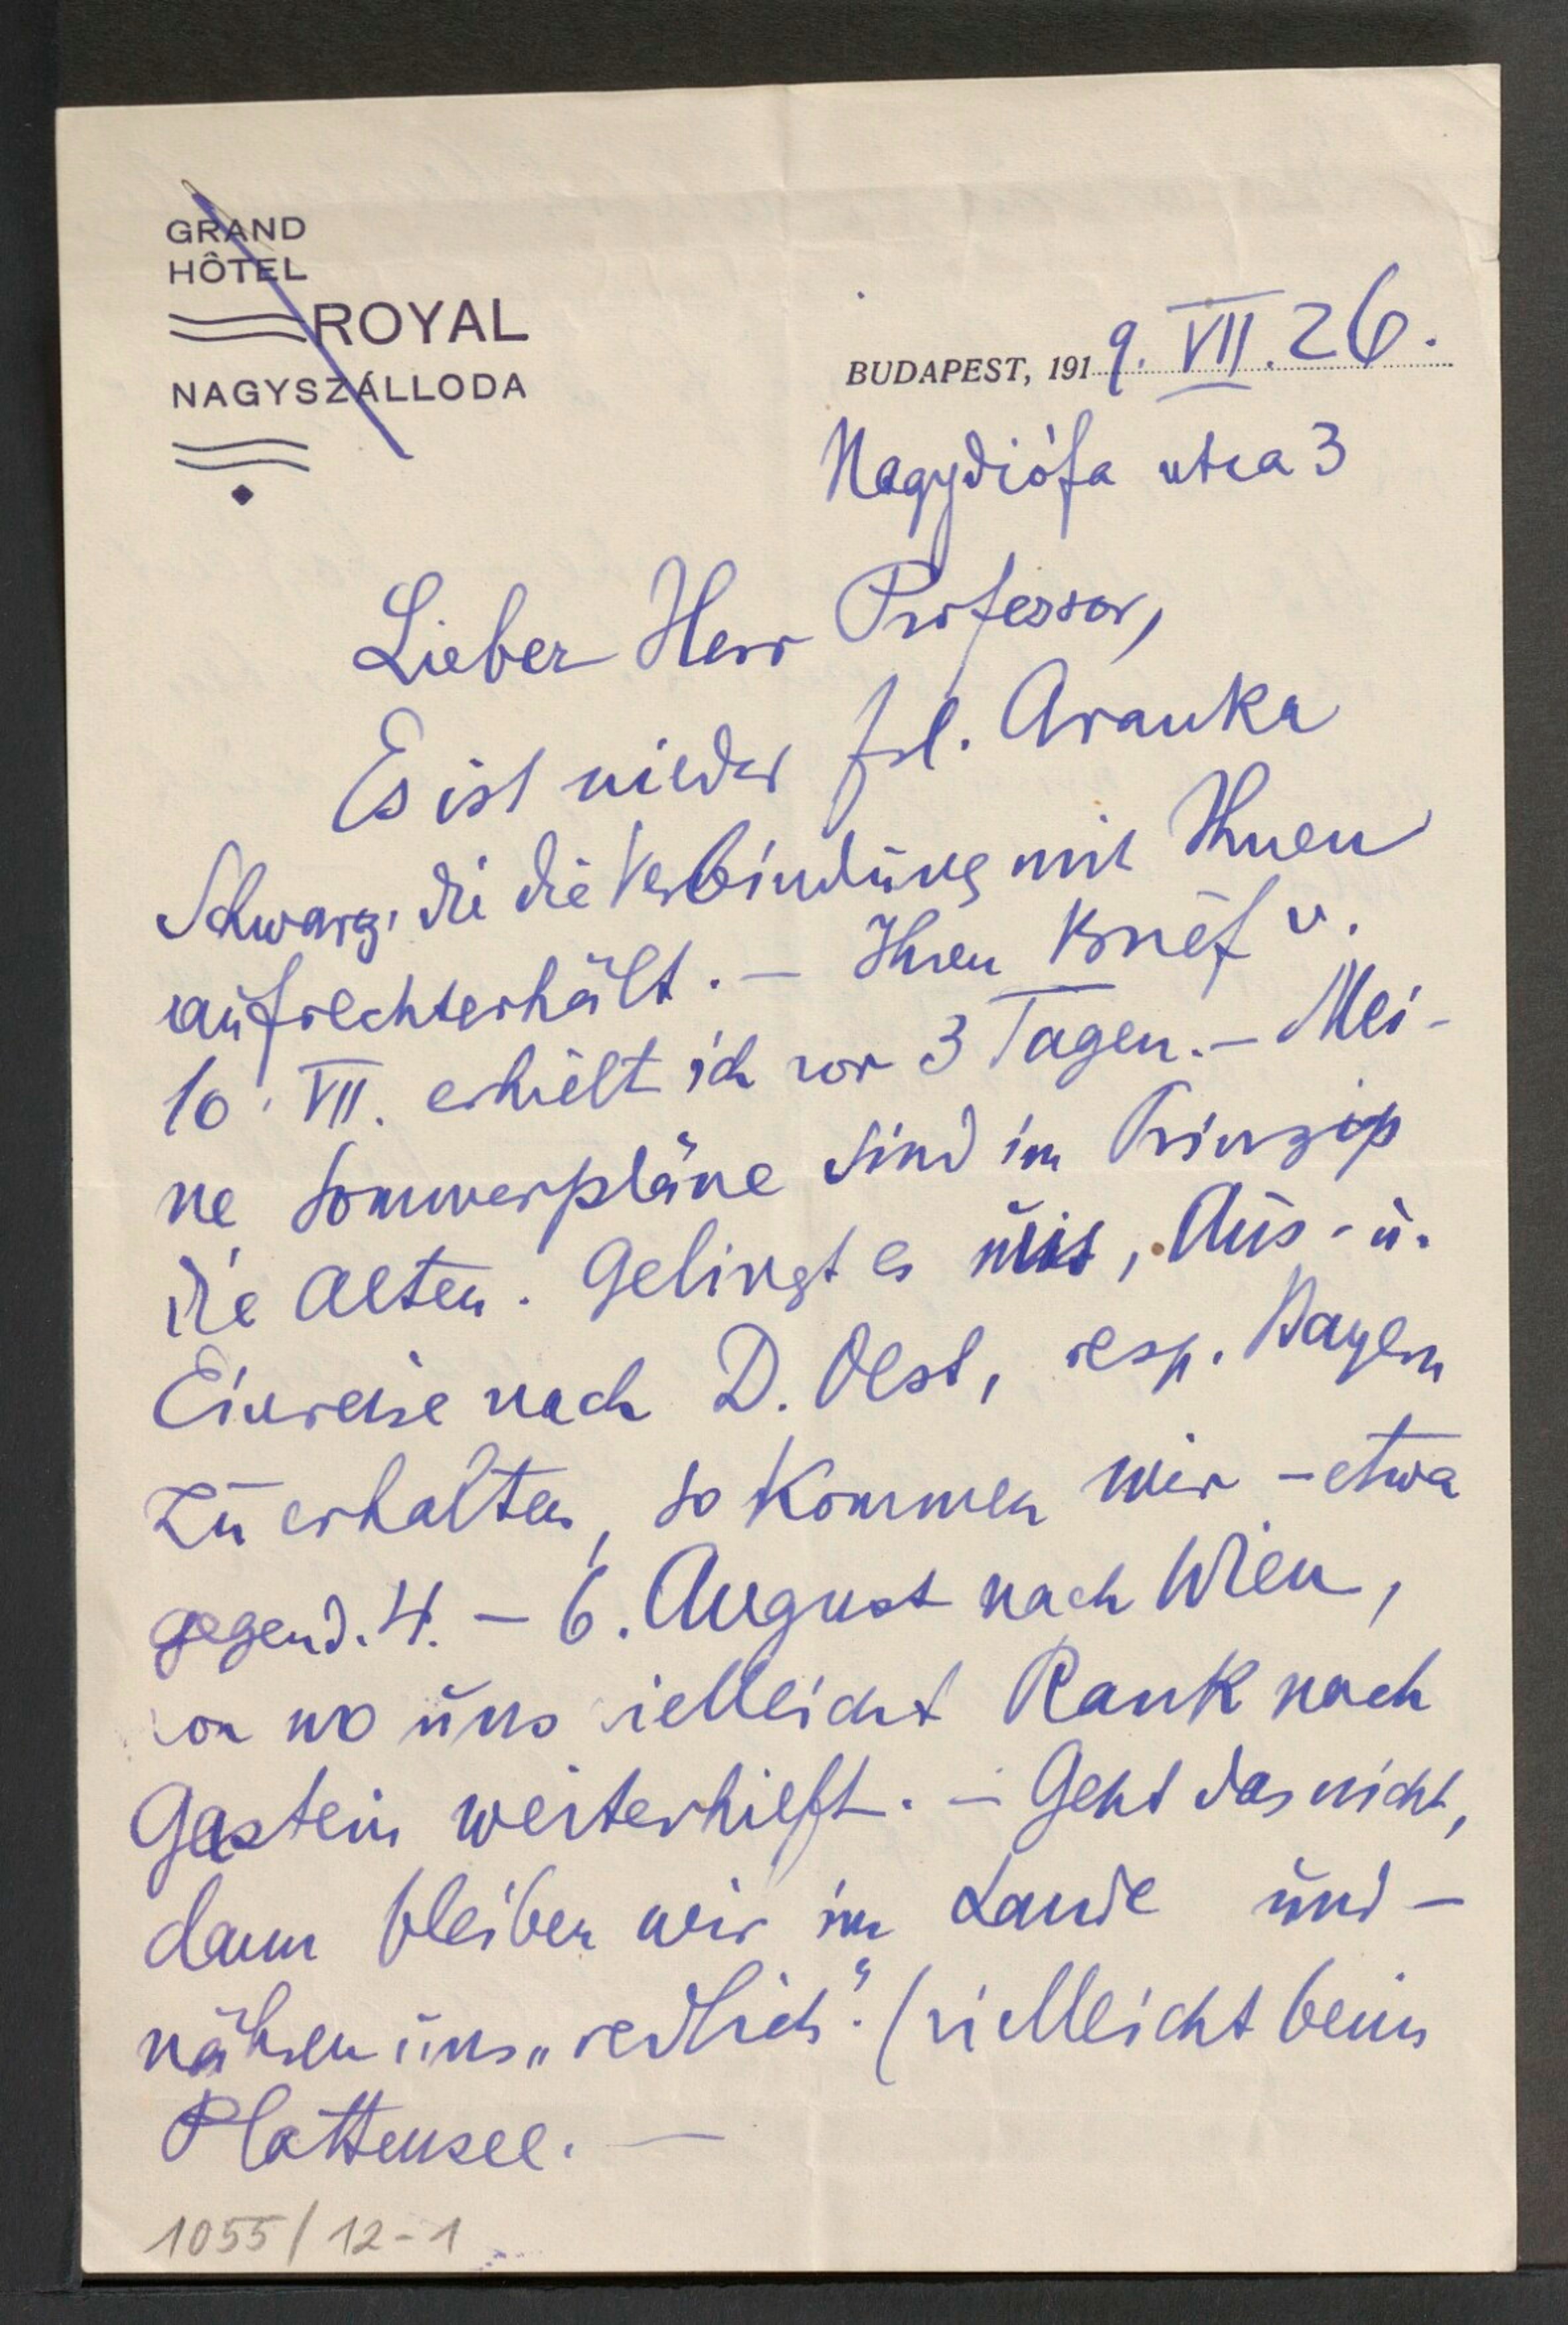 GRAND
HÔTEL
ROYAL
NAGYSZÁLLODA
BUDAPEST, 1919. VII. 26.
Nagydiófa utca 3
Lieber Herr Professor,
Es ist wieder Frl. Aranka
Schwarz, die die Verbindung mit Ihnen
aufrechterhält. — Ihren Brief v.
10. VII. erhielt ich vor 3 Tagen. — Mei-
ne Sommerpläne sind im Prinzip
die alten. Gelingt es mir, Aus- u.
Einreise nach D. Oest, resp. Bayern
zu erhalten, so kommen wir – etwa
gegen d. 4. – 6. August nach Wien,
von wo uns vielleicht Rank nach
Gastein weiterhilft. — Geht das nicht,
dann bleiben wir im Lande und –
nähren uns „redlich“. (vielleicht beim
Plattensee. —
1055/12-1